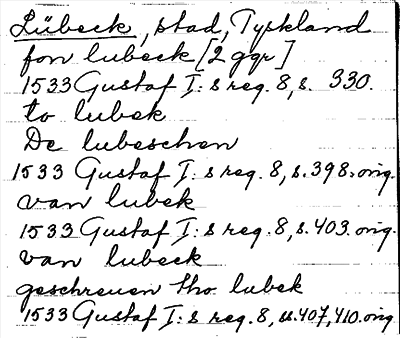 Lübeck, stad, Tyskland
fon lubeck [2 ggr]
1533 Gustaf I: s reg. 8, s. 330.
to lubek
De lubeschen
1533 Gustaf I: s reg. 8, s. 398. orig.
van lubek
1533 Gustaf I: s reg. 8, s. 403. orig.
van lubeck
geschreuen tho lubek
1533 Gustaf I: s reg. 8, ss. 407, 410. orig